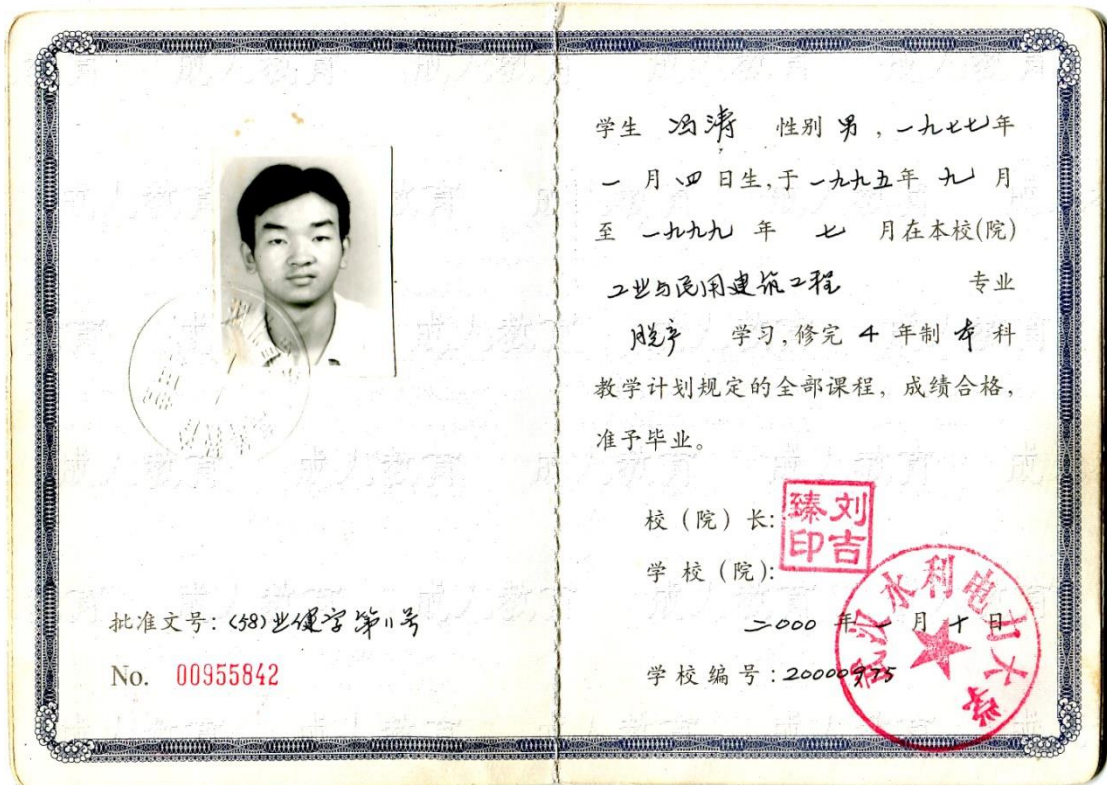 批准文号：(58)业健字第11号
No. 00955842
学生 冯涛 性别 男，一九七七年
一月四日生，于一九九五年九月
至一九九九年七月在本校(院)
工业与民用建筑工程 专业
脱产 学习，修完4年制本科
教学计划规定的全部课程，成绩合格，
准予毕业。
校（院）长：
刘吉臻印
学校（院）：
武汉水利电力大学
二000年一月十日
学校编号：20000975
成人教育